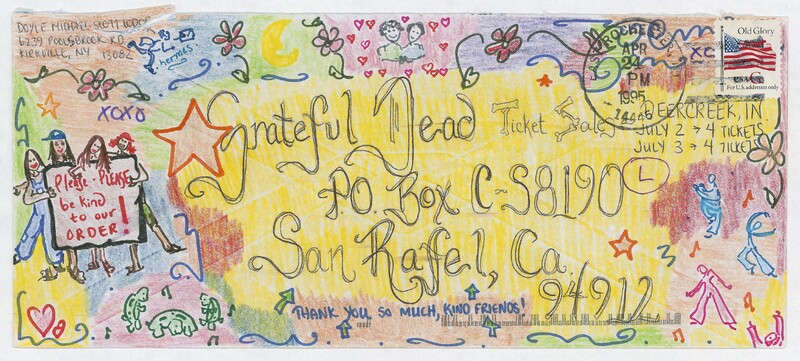 DOYLE MICHAEL SCOTT
6239 POOLSBROOK RD.
KIRKVILLE, NY 13082
hermes
XOXO
ROCHESTER
APR
24
PM
1995
XO
Old Glory
USA G
For U.S. addresses only
Grateful Dead Ticket Sales
P.O. Box C-S8190
San Rafel, Ca.
94912
DEERCREEK, IN.
JULY 2 → 4 TICKETS
JULY 3 → 4 TICKETS
L
Please - PLEASE
be kind
to our
ORDER!
THANK YOU SO MUCH, KIND FRIENDS!